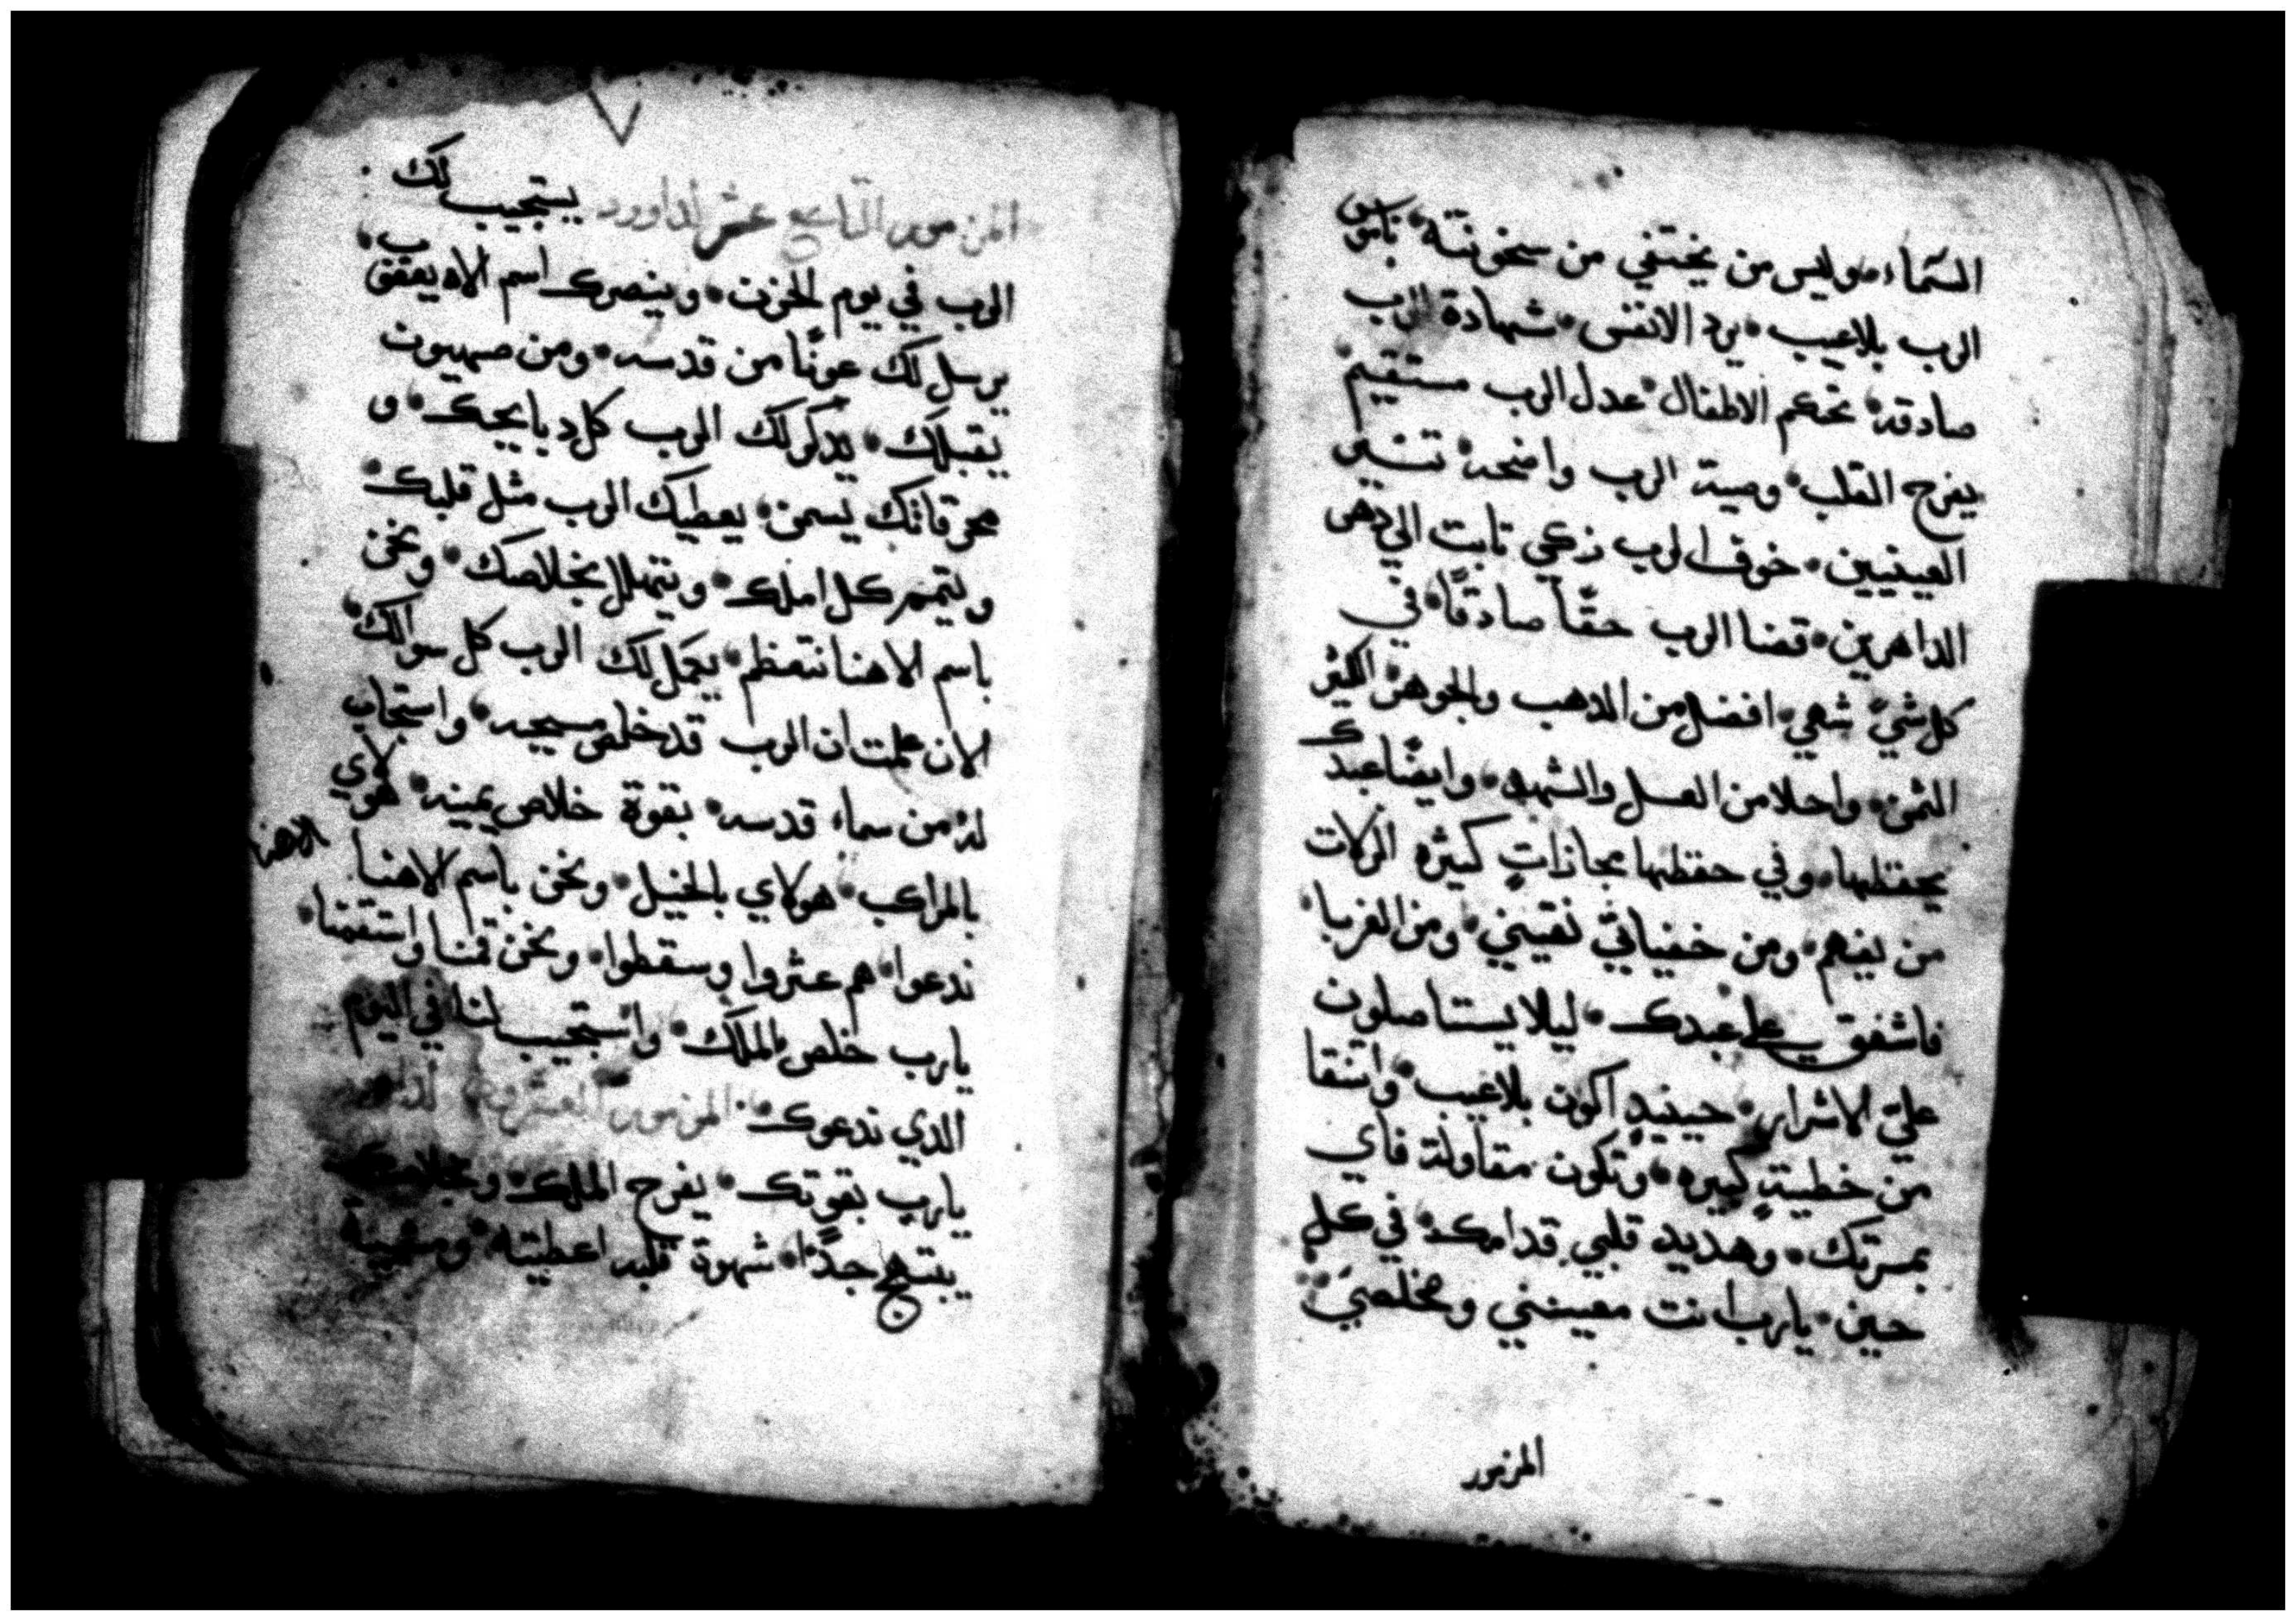 السماء وليس من يختفي من سخونته ناموس
الرب بلاعيب يرد الانفس شهادة الرب
صادقه تحكم الاطفال عدل الرب مستقيم
يفرح القلب وصية الرب واضحه تنير
العينين خوف الرب زكي تابت الي دهر
الداهرين قضا الرب حقًا صادقًا في
كل شيً شهي افضل من الدهب والجوهر الكثير
الثمن واحلا من العسل والشهد وايضًا عبدك
يحفظها وفي حفظها مجازاتٍ كثيره الزلات
من يفهم ومن خفياتي نقيني ومن الغربا
فاشفق علي عبدك ليلا يستاصلون
عليّ الاشرار حينيدٍ اكون بلاعيب واتنقا
من خطيتٍ كبيره وتكون مقاولة فاي
بمسرتك وهديد قلبي قدامك في كل
حين يارب انت معينني ومخلصي
المزمور
المزمور التاسع عشر لداوود يستجيب لك
الرب في يوم الحزن وينصرك اسم الاه يعقوب
يرسل لك عونًا من قدسه ومن صهيون
يقبلك يدكر لك الرب كل دبايحك و
محرقاتك يسمن يعطيك الرب مثل قلبك
ويتمم كل املك ونتهلل بخلاصك ونحن
باسم الاهنا نتعظم يكمل لك الرب كل سوالك
الان علمت ان الرب قد خلص مسيحه واستجاب
له من سماء قدسه بقوة خلاص يمينه هولاي
بالمراكب هولاي بالخيل ونحن باسم الاهنا الاهنا
ندعوا هم عثروا وسقطوا ونحن قمنا واستقمنا
يارب خلص الملك واستجيب لنا في اليوم
الدي ندعوك المزمور العشرون لداوود
يارب بقوتك يفرح الملك وبخلاصك
يبتهج جدًا شهوة قلبه اعطيته ومشية